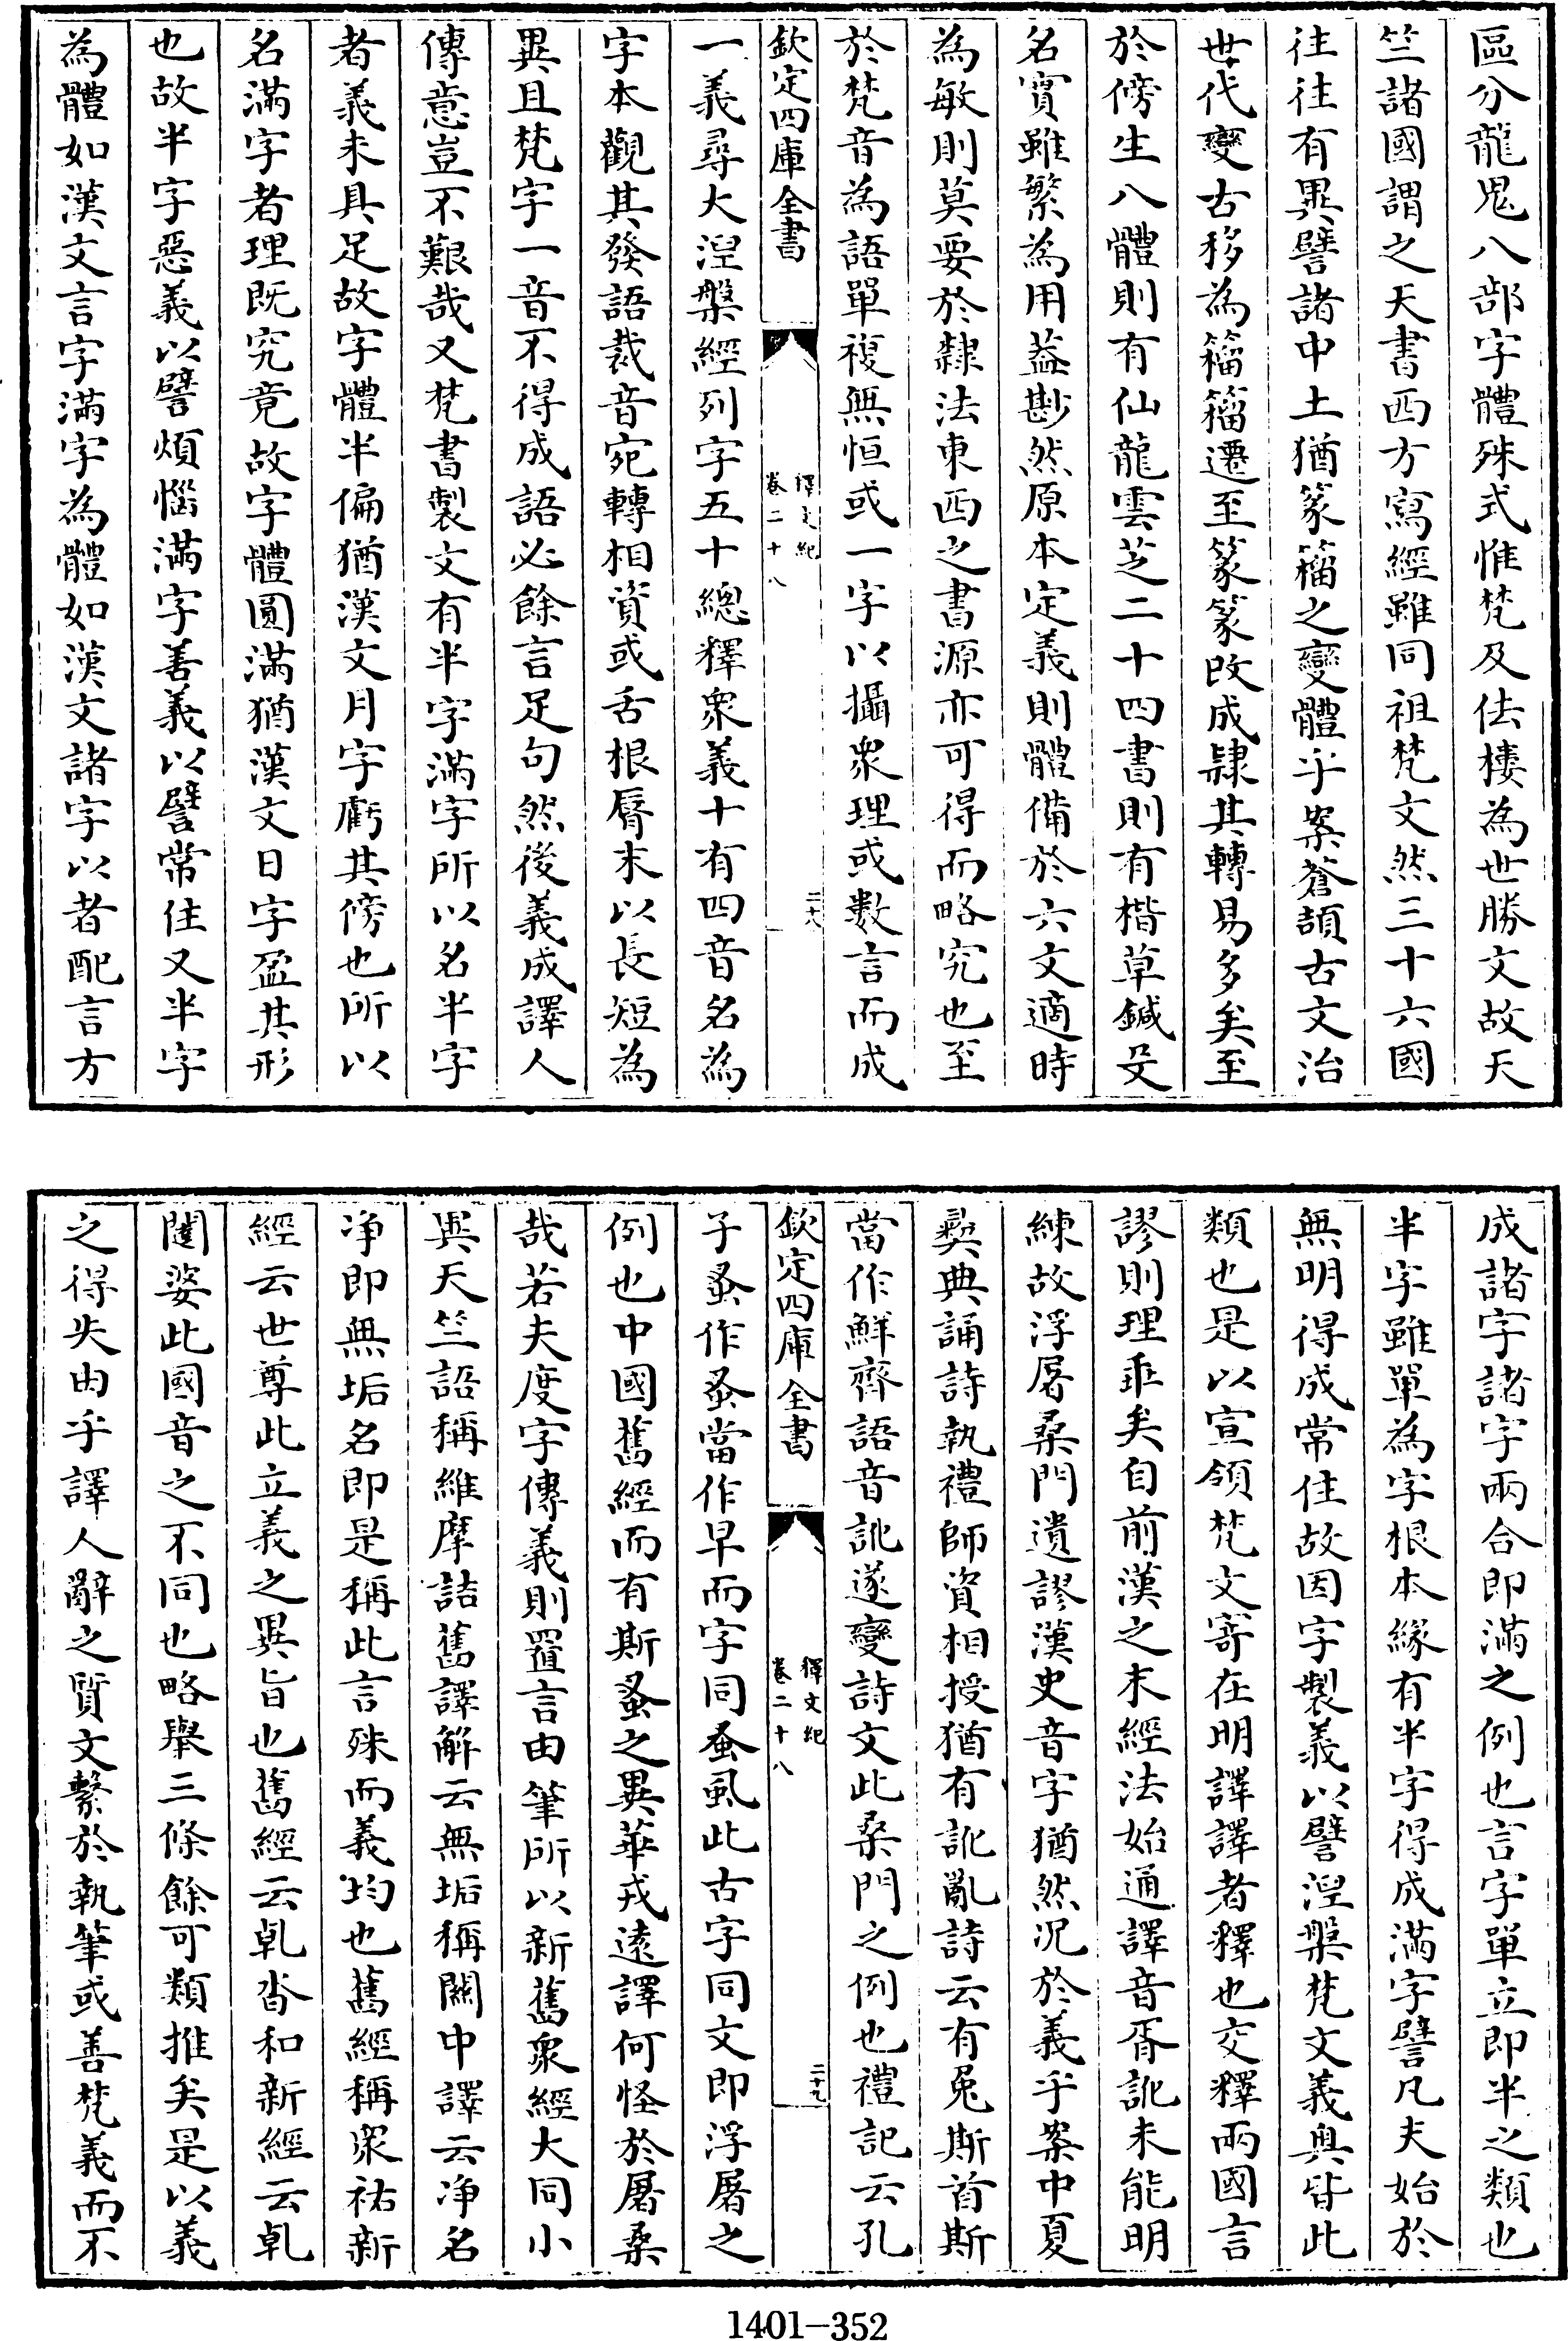 區分龍鬼八部字體殊式惟梵及佉樓為世勝文故天
竺諸國謂之天書西方寫經雖同祖梵文然三十六國
往往有異譬諸中土猶篆籀之變體乎案蒼頡古文治
世代變古移為籀籀遷至篆篆改成隸其轉易多矣至
於傍生八體則有仙龍雲芝二十四書則有楷草鍼殳
名實雖繁為用蓋尠然原本定義則體備於六文適時
為敏則莫要於隸法東西之書源亦可得而略究也至
於梵音為語單複無恒或一字以攝衆理或數言而成
欽定四庫全書
釋文紀
卷二十八
二十八
一義尋大涅槃經列字五十總釋衆義十有四音名為
字本觀其發語裁音宛轉相資或舌根脣末以長短為
異且梵字一音不得成語必餘言足句然後義成譯人
傳意豈不艱哉又梵書製文有半字滿字所以名半字
者義未具足故字體半偏猶漢文月字虧其傍也所以
名滿字者理既究竟故字體圓滿猶漢文日字盈其形
也故半字惡義以譬煩惱滿字善義以譬常住又半字
為體如漢文言字滿字為體如漢文諸字以者配言方
成諸字諸字兩合即滿之例也言字單立即半之類也
半字雖單為字根本緣有半字得成滿字譬凡夫始於
無明得成常住故因字製義以譬涅槃梵文義奧皆此
類也是以宣領梵文寄在明譯譯者釋也交釋兩國言
謬則理乖矣自前漢之末經法始通譯音胥訛未能明
練故浮屠桑門遺謬漢史音字猶然況於義乎案中夏
彝典誦詩執禮師資相授猶有訛亂詩云有兎斯首斯
當作鮮齊語音訛遂變詩文此桑門之例也禮記云孔
欽定四庫全書
釋文紀
卷二十八
二十九
子蚤作蚤當作早而字同蚤虱此古字同文即浮屠之
例也中國舊經而有斯蚤之異華戎遠譯何怪於屠桑
哉若夫度字傳義則置言由筆所以新舊衆經大同小
異天竺語稱維摩詰舊譯解云無垢稱關中譯云淨名
淨即無垢名即是稱此言殊而義均也舊經稱衆祐新
經云世尊此立義之異旨也舊經云乹沓和新經云乹
闥婆此國音之不同也略舉三條餘可類推矣是以義
之得失由乎譯人辭之質文繫於執筆或善梵義而不
1401-352